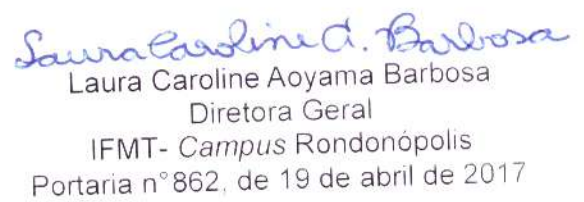 Laura Caroline A. Barbosa
Laura Caroline Aoyama Barbosa
Diretora Geral
IFMT- Campus Rondonópolis
Portaria n°862, de 19 de abril de 2017